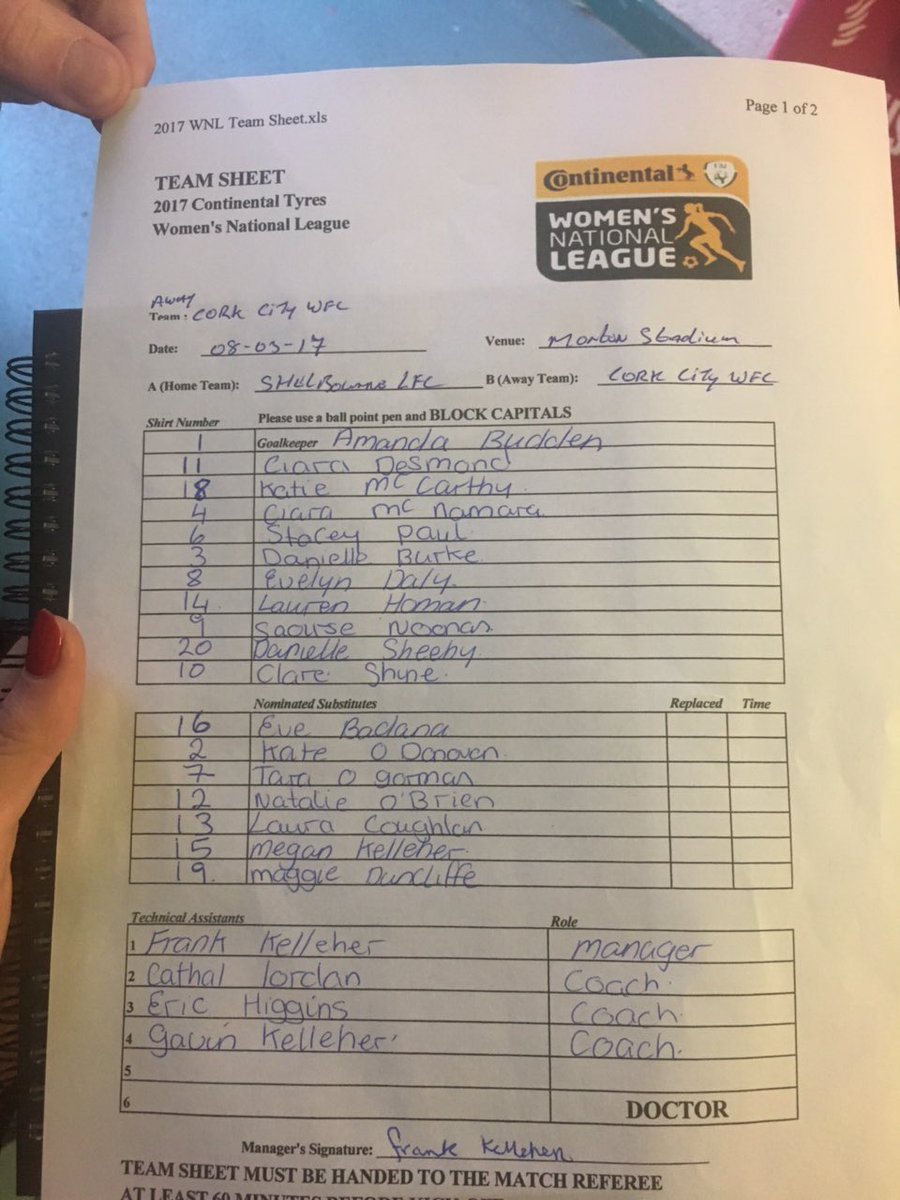 2017 WNL Team Sheet.xls
Page 1 of 2
TEAM SHEET
2017 Continental Tyres
Women's National League
Continental
WOMEN'S
NATIONAL
LEAGUE
Away
Team: CORK CITY WFC
Date: 08-03-17
Venue: Morton Stadium
A (Home Team): SHELBOURNE LFC B (Away Team): CORK CITY WFC
Shirt Number Please use a ball point pen and BLOCK CAPITALS
1 Goalkeeper Amanda Budden
11 Ciara Desmond
18 Katie McCarthy.
4 Ciara Mc Namara
6 Stacey Paul.
3 Danielle Burke
8 Evelyn Daly.
14 Lauren Homan.
9 Saourse Noonan.
20 Danielle Sheehy.
10 Clare Shine.
Nominated Substitutes Replaced Time
16 Eve Badana
2 Kate O Donovan.
7 Tara O gorman
12 Natalie O'Brien
13 Laura Coughlan
15 Megan Kelleher.
19. Maggie Duncliffe
Technical Assistants Role
1 Frank Kelleher Manager
2 Cathal Jordan Coach.
3 Eric Higgins Coach.
4 Gavin Kelleher. Coach.
5
6 DOCTOR
Manager's Signature: Frank Kelleher
TEAM SHEET MUST BE HANDED TO THE MATCH REFEREE
AT LEAST 60 MINUTES BEFORE